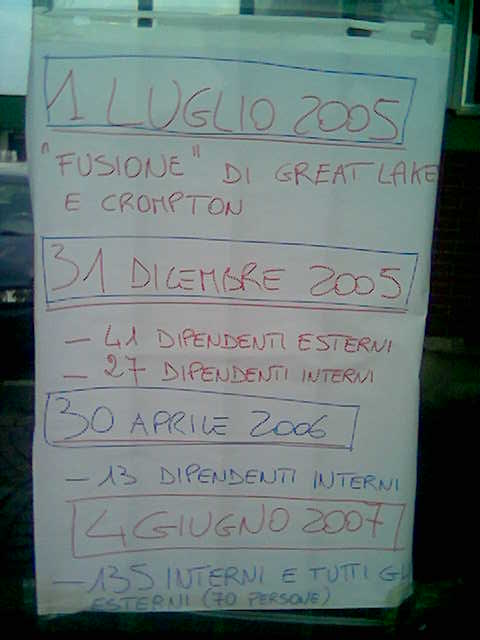 1 LUGLIO 2005
"FUSIONE" DI GREAT LAKE
E CROMPTON
31 DICEMBRE 2005
- 41 DIPENDENTI ESTERNI
- 27 DIPENDENTI INTERNI
30 APRILE 2006
- 13 DIPENDENTI INTERNI
4 GIUGNO 2007
- 135 INTERNI E TUTTI GLI
ESTERNI (70 PERSONE)